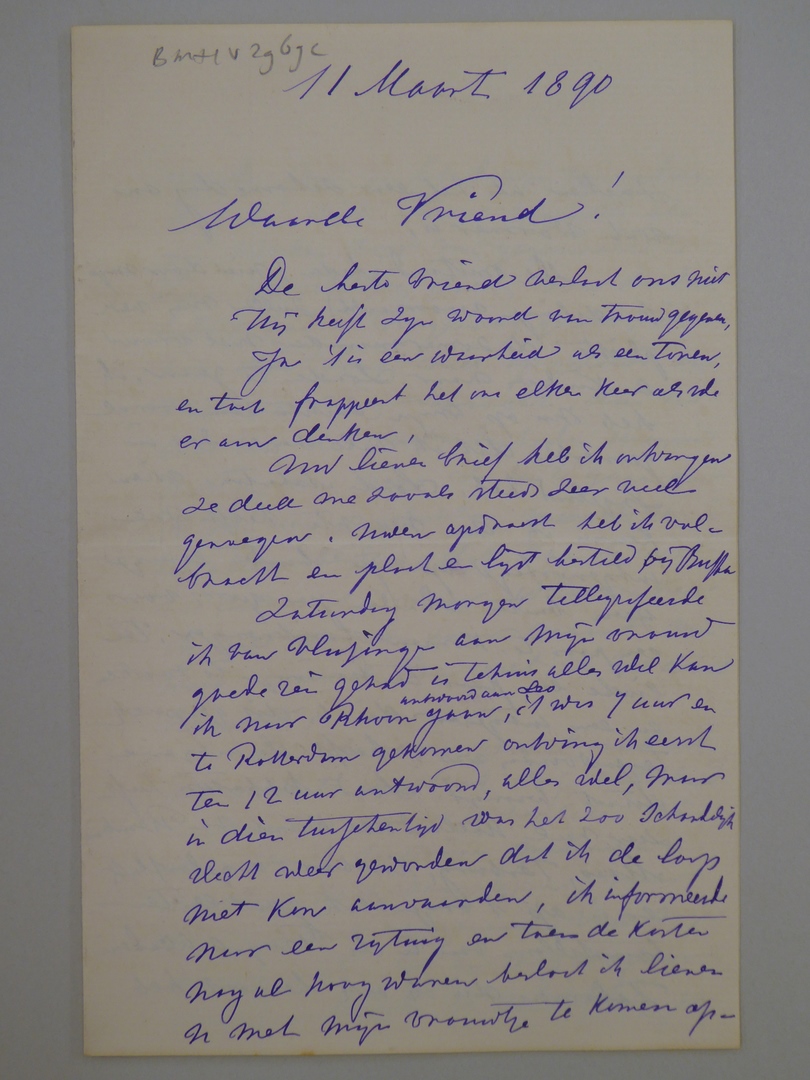 BMH v 2g6gc
11 Maart 1890
Waarde Vriend!
De beste vriend verlaat ons niet
Hij heeft zijn woord van trouw gegeven,
Ja 't is een waarheid als een toren,
en toch frappeert het ons elken keer als we
er aan denken,
Uw lieven brief heb ik ontvangen
ze deed me zooals steeds zeer veel
genoegen. Uwen opdracht heb ik vol-
bracht en plaat en lijst besteld bij Buffa
Zaturdag morgen tellegrafeerde
ik van Vlissingen aan mijn vrouw
goede reis gehad is tehuis alles wel kan
ik naar Rhoon gaan, 't was 7 uur en
antwoord aan
te Rotterdam gekomen ontving ik eerst
ten 12 uur antwoord, alles wel, maar
in dien tusschentijd was het zoo schandelijk
slecht weer geworden dat ik de loop
niet kon aanvaarden, ik informeerde
naar een rijtuig en toen de kosten
nog al hoog waren besloot ik liever
met mijn vrouwtje te komen op-